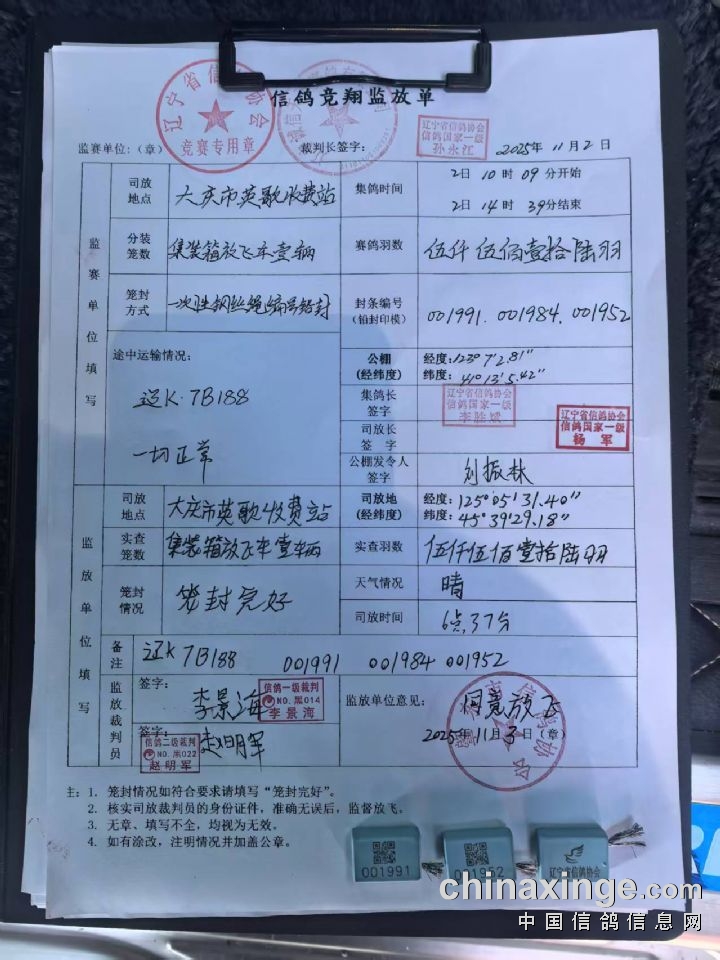 信鸽竞翔监放单
辽宁省信鸽协会
竞赛专用章
监赛单位:(章)
裁判长签字:
辽宁省信鸽协会
信鸽国家一级
孙永江
2025年11月2日
监赛单位填写
司放地点
大庆市英歌收费站
集鸽时间
2日10时09分开始
2日14时39分结束
分装笼数
集装箱放飞车壹辆
赛鸽羽数
伍仟伍佰壹拾陆羽
笼封方式
一次性钢丝绳编号铅封
封条编号
(铅封印模)
001991. 001984. 001952
途中运输情况:
辽K·7B188
一切正常
公棚
(经纬度)
经度:123°7'2.81"
纬度:41°13'5.42"
集鸽长签字
辽宁省信鸽协会
信鸽国家一级
李胜斌
司放长签字
辽宁省信鸽协会
信鸽国家一级
杨军
公棚发令人签字
刘振林
监放单位填写
司放地点
大庆市英歌收费站
司放地
(经纬度)
经度:125°05'31.40"
纬度:45°39'29.18"
实查笼数
集装箱放飞车壹辆
实查羽数
伍仟伍佰壹拾陆羽
笼封情况
笼封完好
天气情况
晴
司放时间
6点37分
备注
辽K7B188 001991 001984 001952
监放裁判员
签字:
李景海
信鸽一级裁判
NO.黑014
李景海
签字:
赵明军
信鸽二级裁判
NO.黑022
赵明军
监放单位意见:
同意放飞
2025年11月3日(章)
注:1. 笼封情况如符合要求请填写“笼封完好”。
2. 核实司放裁判员的身份证件,准确无误后,监督放飞。
3. 无章、填写不全,均视为无效。
4. 如有涂改,注明情况并加盖公章。
001991
001952
辽宁省信鸽协会
chinaxinge.com
中国信鸽信息网